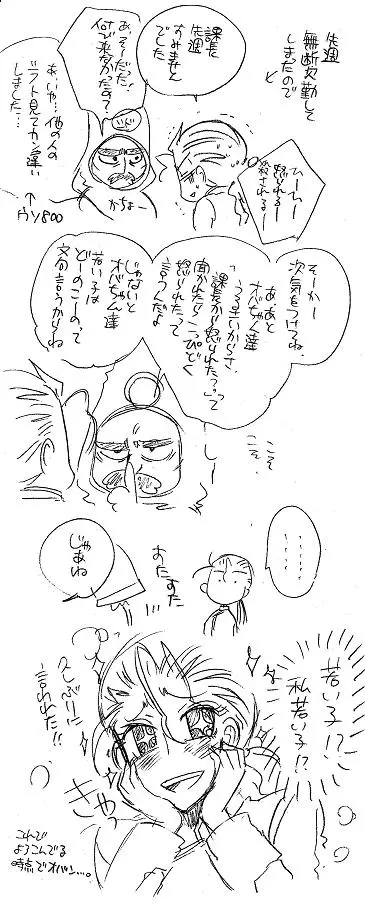 先週
無断欠勤して
しまたので
と
課長
先週
すみません
でした
あ、そーだった!
何で来なかったの?
かちょー
あ、いや…他の人の
シフト見てカン違い
しました…
↑
ウソ800
ひぃー
怒られるー
殺されるー
そーかー
次、気をつけてね
あ、あと
オバちゃん達
うるさいからさ、
「課長から怒られたー?」って
聞かれたら「こっぴどく
怒られた」って
言うんだよ
じゃないと
オバちゃん達
若い子は
どーのこーのって
文句言うからね
こそ
こそ
…………
じゃあね
すたすた
若い子!?
私若い子!?
久しぶりに
言われた!!
きゃっ
こんで
ようこんでる
時点でオバン…。